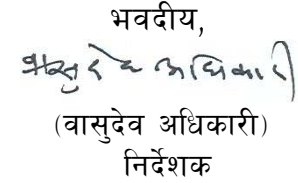 भवदीय,
वासुदेव अधिकारी
(वासुदेव अधिकारी)
निर्देशक